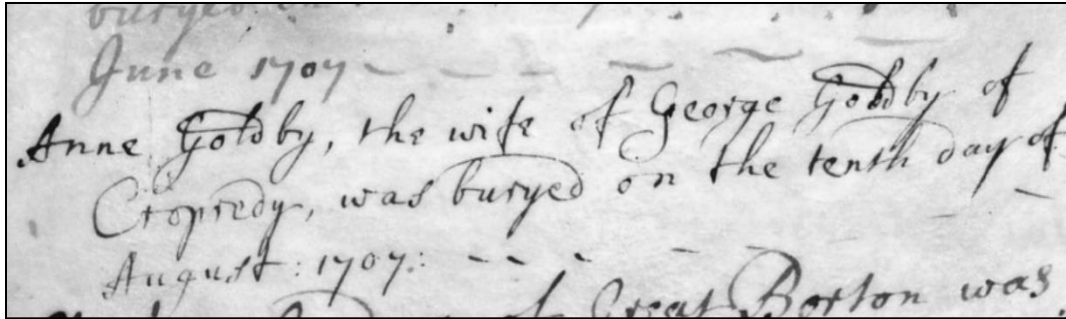 buryed
June 1707
Anne Goldby, the wife of George Goldby of
Cropredy, was buryed on the tenth day of
August: 1707:
of Great Borton was